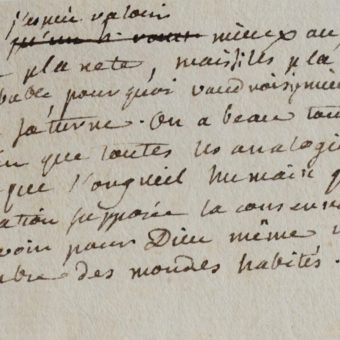 valois
mieux au
planete, mais s'il
pourquoi vaudrois-je mie
Saturne. On a beau tou
que toutes les analogie
que l'orgueil humain q
ation supposée la conserv
voir pour Dieu même u
bre des mondes habités.